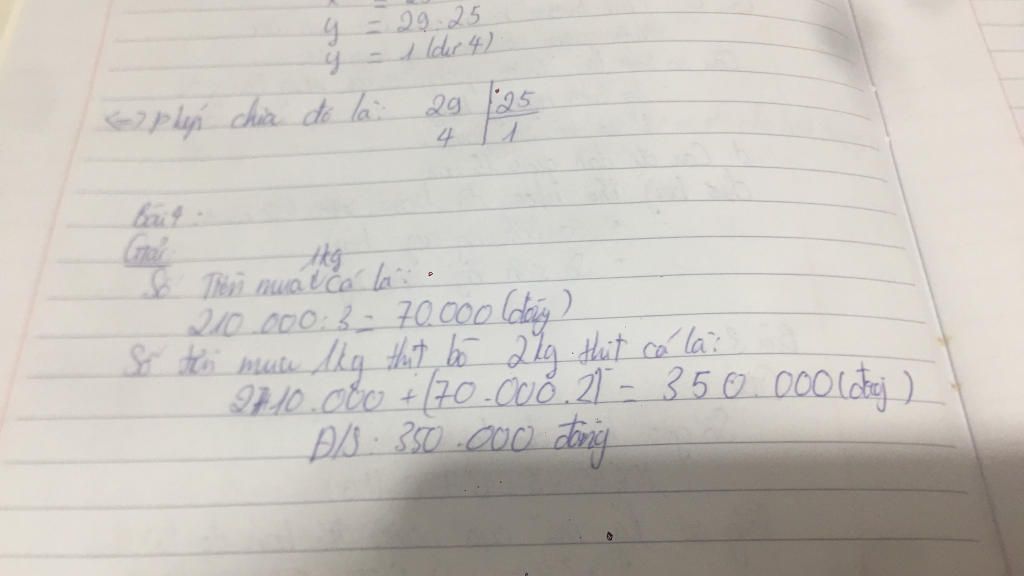 y = 29.25
y = 1 (dư 4)
<=> phép chia đó là: 29 25
4 1
Bài 4:
Giải
1kg
Số tiền mua cá là:
210.000:3 = 70.000 (đồng)
Số tiền mua 1kg thịt bò 2kg thịt cá là:
210.000 + (70.000.2) = 350.000 (đồng)
Đ/S: 350.000 đồng